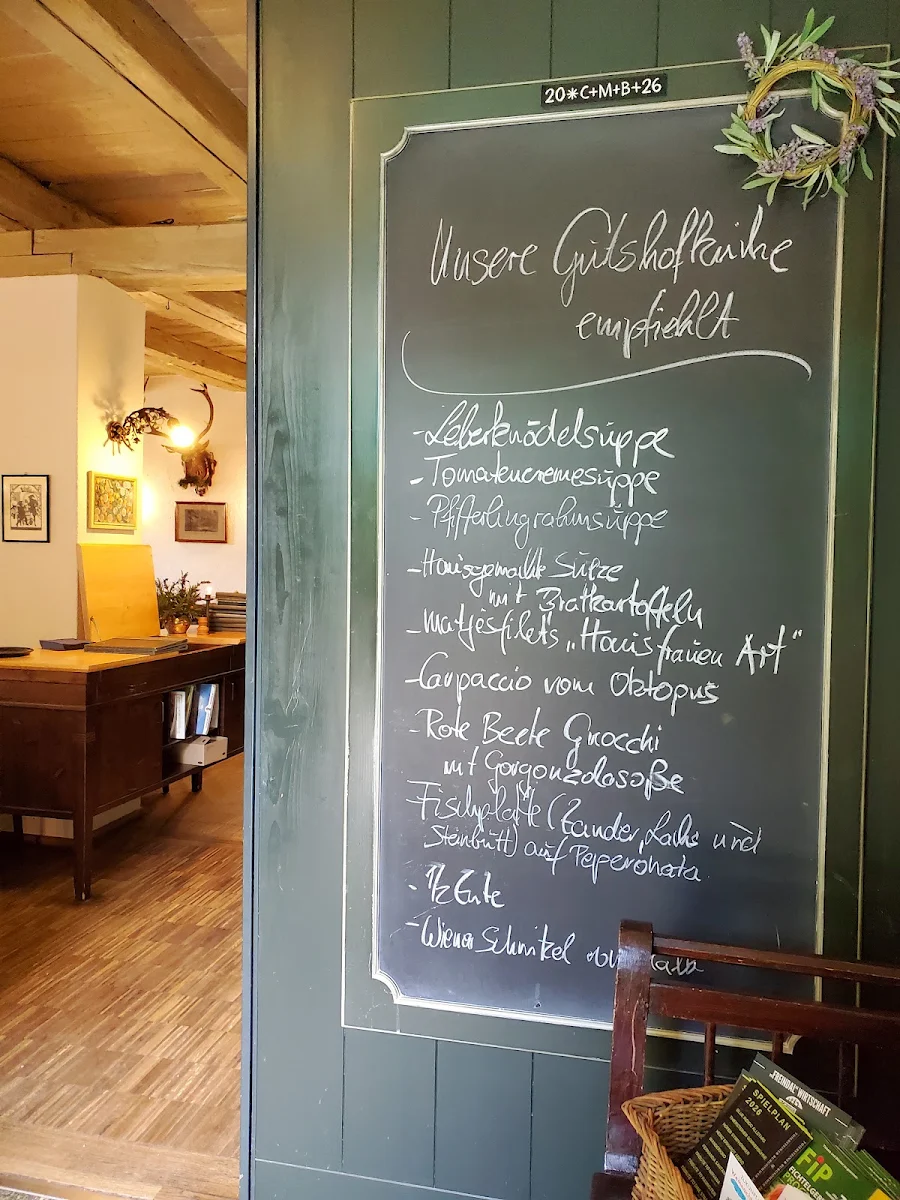 20*C+M+B+26
Unsere Gutshofküche
empfiehlt
- Leberknödelsuppe
- Tomatencremesuppe
- Pfifferlingrahmsuppe
- Hausgemachte Sülze
mit Bratkartoffeln
- Matjesfilets „Hausfrauen Art“
- Carpaccio vom Oktopus
- Rote Beete Gnocchi
mit Gorgonzolasoße
- Fischplatte (Zander, Lachs und
Steinbutt) auf Peperonata
- 1/2 Ente
- Wiener Schnitzel vom Kalb
"FREINDAL" WIRTSCHAFT
SPIELPLAN
2026
FiP